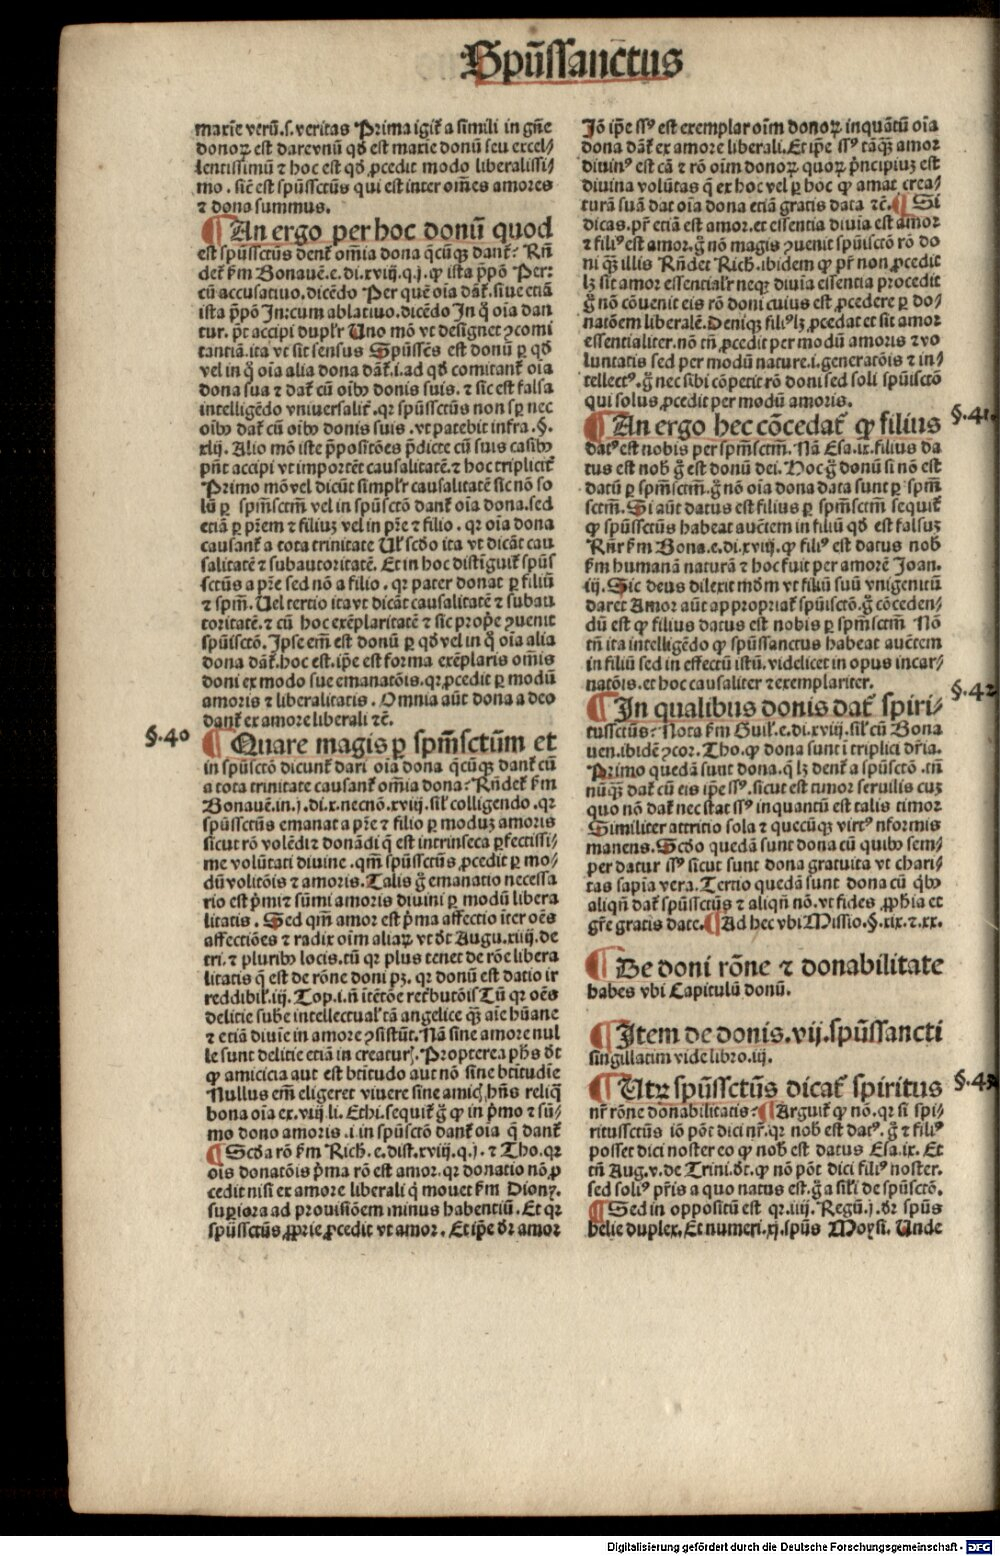 Spūssanctus
maxīe verū.s.veritas Prima igit̄ a simili in gn̄e
donoꝝ est dare vnū qḋ est maxīe donū seu excel/
lentissimū ⁊ hoc est qḋ ꝓcedit modo liberalissi/
mo. sic̄ est spūssctūs qui est inter om̄es amores
⁊ dona summus.
¶ An ergo per hoc donū quod
est spūssctūs dent̄ om̄ia dona q̄cūqꝫ dant̄? Rn̄
det̄ ẜm Bonauē.e.di.xviij.q.j.ꝙ ista p̄pō Per:
cū accusatiuo.dicēdo Per quē oīa dāt̄.siue etiā
ista p̄pō In:cum ablatiuo.dicēdo In q̄ oīa dan
tur. p̄t accipi duplr̄ Uno mō vt designet ꝯcomi
tantiā.ita vt sit sensus Spūssc̄s est donū ꝑ qḋ
vel in q̄ oīa alia dona dāt̄.i.ad qḋ comitant̄ oīa
dona sua ⁊ dat̄ cū oībꝰ donis suis. ⁊ sic est falsa
intelligēdo vniuersalit̄.qr spūssctūs non sꝑ nec
oībꝰ dat̄ cū oībꝰ donis suis .vt patebit infra.§.
xlij. Alio mō iste p̄positōes p̄dicte cū suis casibꝰ
pn̄t accipi vt importēt causalitatē.⁊ hoc triplicit̄
Primo mō vel dicūt simplr̄ causalitatē sic nō so
lū ꝑ spm̄sctm̄ vel in spūsctō dant̄ oīa dona.sed
etiā ꝑ pr̄em ⁊ filiuꝫ vel in pr̄e ⁊ filio . qr oīa dona
causant̄ a tota trinitate Ul̄ scḋo ita vt dicāt cau
salitatē ⁊ subautoritatē. Et in hoc distīguit̄ spūs
sctūs a pr̄e sed nō a filio . qr pater donat ꝑ filiū
⁊ spm̄. Uel tertio ita vt dicāt causalitatē ⁊ subau
toritatē.⁊ cū hoc exēplaritatē ⁊ sic prop̄e ꝯuenit
spūisctō. Ipse em̄ est donū ꝑ qḋ vel in q̄ oīa alia
dona dāt̄.hoc est.ip̄e est forma exēplaris om̄is
doni ex modo sue emanatōis.qr ꝓcedit ꝑ modū
amoris ⁊ liberalitatis . Omnia aūt dona a deo
dant̄ ex amore liberali ⁊c̄.
§.40
¶ Quare magis ꝑ spm̄sctūm et
in spūsctō dicunt̄ dari oīa dona q̄cūqꝫ dant̄ cū
a tota trinitate causant̄ om̄ia dona? Rn̄det̄ ẜm
Bonauē.in.j.di.x.necnō.xviij.sil̄ colligendo .qr
spūssctūs emanat a pr̄e ⁊ filio ꝑ moduꝫ amoris
sicut rō volēdi ⁊ donādi q̄ est intrinseca ꝑfectissi/
me volūtati diuine .qm̄ spūssctūs ꝓcedit ꝑ mo/
dū volitōis ⁊ amoris.Talis ḡ emanatio necessa
rio est p̄mi ⁊ sūmi amoris diuini ꝑ modū libera
litatis . Sed qm̄ amor est p̄ma affectio īter oēs
affectiōes ⁊ radix oīm aliaꝝ vt ḋt Augu.xiiij.de
tri.⁊ pluribꝰ locis.tū qr plus tenet de rōe libera
litatis q̄ est de rōne doni pꝫ. qr donū est datio ir
reddibil̄.iij. Top.i.n̄ ītētōe ret̄butōis Tū qr oēs
delitie sub̄e intellectual̄ tā angelice qꝫ̄ aīe hūane
⁊ etiā diuīe in amore ꝯsistūt. Nā sine amore nul
le sunt delitie etiā in creatur̄. Propterea phs̄ ḋt
ꝙ amicicia aut est btītudo aut nō sine btītudīe
Nullus em̄ eligeret viuere sine amic̄ hn̄s reliq̄
bona oīa ex.viij li. Ethi.sequit̄ ḡ ꝙ in p̄mo ⁊ sū/
mo dono amoris .i.in spūsctō dant̄ oīa q̄ dant̄
¶ Scḋa rō ẜm Rich.e.dist.xviij.q.j. ⁊ Tho.qr
oīs donatōis p̄ma rō est amor.qr donatio nō ꝓ
cedit nisi ex amore liberali q̄ mouet ẜm Diony.
suꝑiora ad prouisiōem minus habentiū. Et qr
spūssctūs ꝓprie ꝓcedit vt amor. Et ip̄e ḋr amor
Iō ip̄e ssꝰ est exemplar oīm donoꝝ inquātū oīa
dona dāt̄ ex amore liberali.Et ip̄e ssꝰ tāqꝫ amor
diuinꝰ est cā ⁊ rō oīm donoꝝ quoꝝ p̄ncipiuꝫ est
diuina volūtas q̄ ex hoc vel ꝑ hoc ꝙ amat crea/
turā suā dat oīa dona etiā gratis data ⁊c̄.¶ Si
dicas.pr̄ etiā est amor.et essentia diuīa est amor
⁊ filiꝰ est amor.ḡ nō magis ꝯuenit spūisctō rō do
ni qꝫ̄ illis Rn̄det Rich.ibidem ꝙ pr̄ non ꝓcedit
lꝫ sit amor essential̄r neqꝫ diuīa essentia procedit
ḡ nō cōuenit eis rō doni cuius est ꝓcedere ꝑ do/
natōem liberalē.Deniqꝫ filiꝰ lꝫ ꝓcedat et sit amor
essentialiter.nō tn̄ ꝓcedit per modū amoris ⁊ vo
luntatis sed per modū nature.i.generatōis ⁊ in/
tellectꝰ.ḡ nec sibi cōpetit rō doni sed soli spūisctō
qui solus ꝓcedit per modū amoris.
§.41.
¶ An ergo hec cōcedat̄ ꝙ filius
datꝰ est nobis per spm̄sctm̄. Nā Esa.ix.filius da
tus est nob̄ ḡ est donū dei. Hoc ḡ donū si nō est
datū ꝑ spm̄sctm̄.ḡ nō oīa dona data sunt ꝑ spm̄
sctm̄. Si aūt datus est filius ꝑ spm̄sctm̄ sequit̄
ꝙ spūssctūs habeat auc̄tem in filiū qḋ est falsuꝫ
Rn̄r ẜm Bona.e.di.xviij.ꝙ filiꝰ est datus nob̄
ẜm humanā naturā ⁊ hoc fuit per amorē Joan.
iij. Sic deus dilexit mḋm vt filiū suū vnigenitū
daret Amor aūt appropriat̄ spūisctō.ḡ cōceden/
dū est ꝙ filius datus est nobis ꝑ spm̄sctm̄ Nō
tn̄ ita intelligēdo ꝙ spūssanctus habeat auc̄tem
in filiū sed in effectū istū.videlicet in opus incar/
natōis.et hoc causaliter ⁊ exemplariter.
§.42
¶ In qualibus donis dat̄ spiri/
tussctūs? Nota ẜm Guil̄.e.di.xviij.sil̄ cū Bona
uen.ibidē ꝯcor.Tho.ꝙ dona sunt ī triplici dr̄ia.
Primo quedā sunt dona.q̄ lꝫ dent̄ a spūsctō .tn̄
nūqꝫ̄ dat̄ cū eis ip̄e ssꝰ.sicut est timor seruilis cuꝫ
quo nō dat̄ nec stat ssꝰ inquantū est talis timor
Similiter attritio sola ⁊ quecūqꝫ virtꝰ nformis
manens. Scḋo quedā sunt dona cū quibꝰ sem/
per datur ssꝰ sicut sunt dona gratuita vt chari/
tas sapīa vera.Tertio quedā sunt dona cū qbꝰ
aliqn̄ dat̄ spūssctūs ⁊ aliqn̄ nō.vt fides ꝓph̄ia et
gr̄e gratis date.¶ Ad hec vbi Missio.§.xix.⁊.xx.
¶ De doni rōne ⁊ donabilitate
habes vbi Capitulū donū.
¶ Item de donis.vij.spūssancti
singillatim vide libro.iij.
§.43
¶ Utꝝ spūssctūs dicat̄ spiritus
nr̄ rōne donabilitatis?¶ Arguit̄ ꝙ nō.qr si spi/
ritussctūs iō pōt dici nr̄.qr nob̄ est datꝰ. ḡ ⁊ filiꝰ
posset dici noster eo ꝙ nob̄ est datus Esa.ix. Et
tn̄ Aug.v.de Trini.ḋt.ꝙ nō pōt dici filiꝰ noster.
sed solꝰ pr̄is a quo natus est.ḡ a sil̄i de spūsctō.
¶ Sed in oppositū est qr.iiij. Regū.j.ḋr spūs
helie duplex. Et numeri.xj.spūs Moysi. Unde
Digitalisierung gefördert durch die Deutsche Forschungsgemeinschaft - DFG